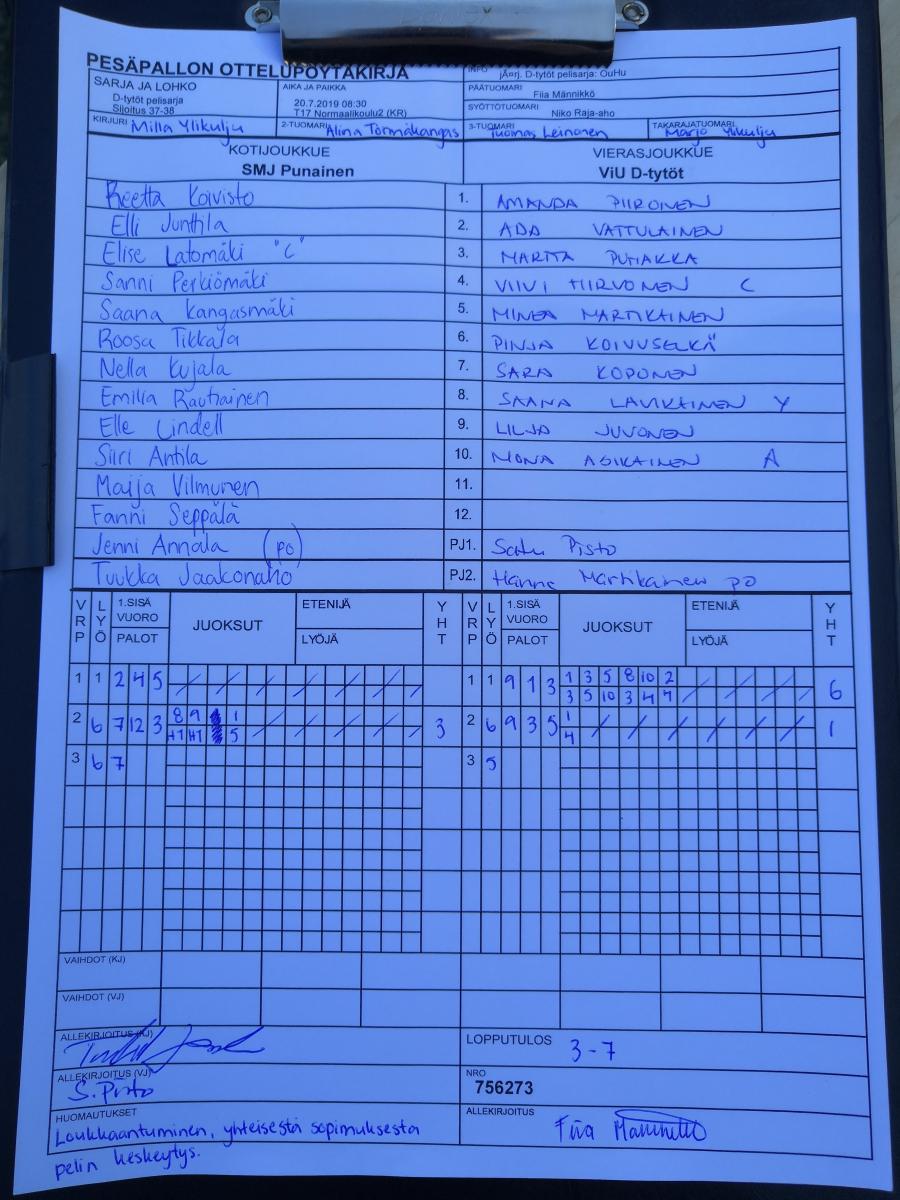 PESÄPALLON OTTELUPÖYTÄKIRJA
INFO
jÄ¤rj. D-tytöt pelisarja: OuHu
SARJA JA LOHKO
D-tytöt pelisarja
Sijoitus 37-38
AIKA JA PAIKKA
20.7.2019 08:30
T17 Normaalikoulu2 (KR)
PÄÄTUOMARI Fiia Männikkö
SYÖTTÖTUOMARI Niko Raja-aho
KIRJURI Milla Ylikulju
2-TUOMARI Alina Törmäkangas
3-TUOMARI Tuomas Leinonen
TAKARAJATUOMARI Marjo Ylikulju
KOTIJOUKKUE VIERASJOUKKUE
SMJ Punainen ViU D-tytöt
Reetta Koivisto 1. AMANDA PIIRONEN
Elli Junttila 2. ADA VATTULAINEN
Elise Latomäki "C" 3. MARTTA PUHAKKA
Sanni Perkiömäki 4. VIIVI HIRVONEN C
Saana Kangasmäki 5. MINEA MARTIKAINEN
Roosa Tikkala 6. PINJA KOIVUSELKÄ
Nella Kujala 7. SARA KOPONEN
Emilia Rautiainen 8. SAANA LAVIKAINEN Y
Elle Lindell 9. LILJA JUVONEN
Siiri Antila 10. MONA ASIKAINEN A
Maija Vilmunen 11.
Fanni Seppälä 12.
Jenni Annala (po) PJ1. Satu Pisto
Tuukka Jaakonaho PJ2. Hanne Martikainen po
VRP LYÖ 1.SISÄ VUORO PALOT JUOKSUT ETENIJÄ LYÖJÄ YHT VRP LYÖ 1.SISÄ VUORO PALOT JUOKSUT ETENIJÄ LYÖJÄ YHT
1 1 2 4 5 / / / / / / / 1 1 9 1 3 1 3 5 8 10 2 / / / /
3 5 10 3 4 7 6
2 6 7 12 3 8 9 1 / / / / / 3 2 6 9 3 5 1 / / / / / / 1
H1 H1 5 4
3 6 7 3 5
VAIHDOT (KJ)
VAIHDOT (VJ)
ALLEKIRJOITUS (KJ)
LOPPUTULOS 3-7
ALLEKIRJOITUS (VJ)
S. Pisto
NRO
756273
HUOMAUTUKSET
Loukkaantuminen, yhteisestä sopimuksesta
pelin keskeytys.
ALLEKIRJOITUS
Fiia Männikkö